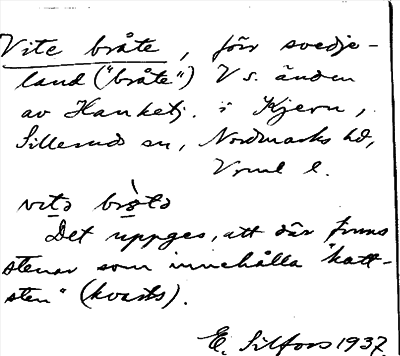 Vite bråte, förr svedje-
land ("bråte") V s. änden
av Hanketj. i Kjern,
Sillerud sn, Nordmarks hd,
Vrml l.
vitə brotə
Det uppges, att där finns
stenar som innehålla "katt-
sten" (kvarts).
E. Silfors 1937.